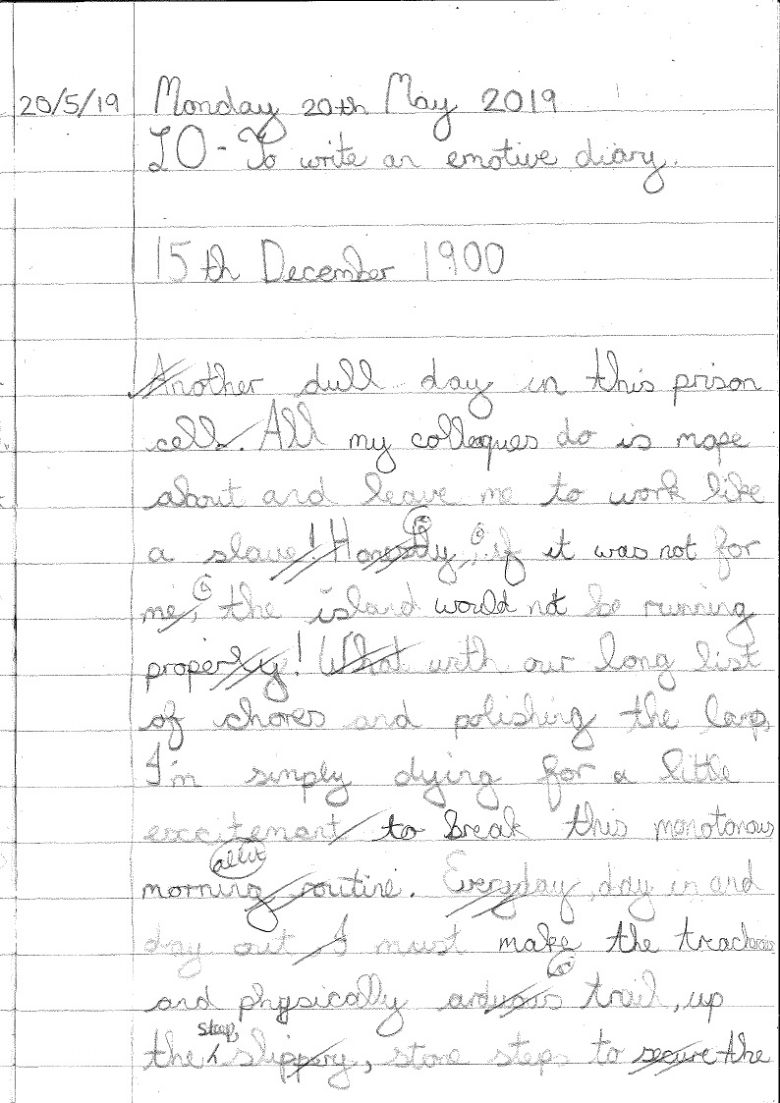 20/5/19 Monday 20th May 2019
LO - To write an emotive diary.
15th December 1900
Another dull day in this prison
cell. All my colleagues do is mope
about and leave me to work like
a slave! Honestly, if it was not for
me, the island would not be running
properly! What with our long list
of chores and polishing the lamp,
I'm simply dying for a little
excitement to break this monotonous
allit
morning routine. Everyday, day in and
day out I must make the
and physically arduous trail, up
steep,
the slippery, stone steps to secure the